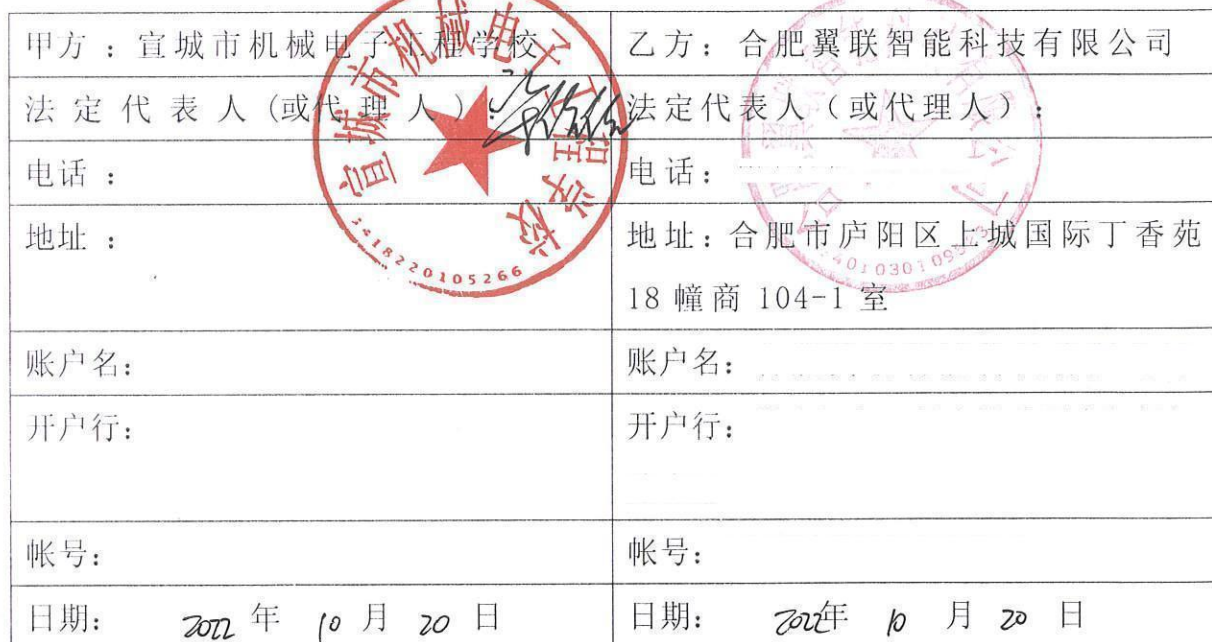 甲方：宣城市机械电子工程学校
乙方：合肥翼联智能科技有限公司
法定代表人(或代理人)：
法定代表人（或代理人）：
电话：
电话：
地址：
地址：合肥市庐阳区上城国际丁香苑
18幢商104-1室
账户名：
账户名：
开户行：
开户行：
帐号：
帐号：
日期： 2022年 10月 20日
日期： 2022年 10月 20日
宣城市机械电子工程学校
3418220105266